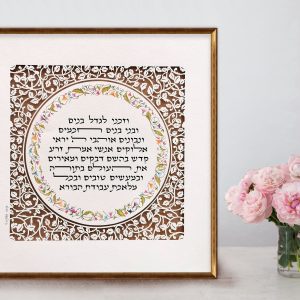 וזכני לגדל בנים
ובני בנים חכמים
ונבונים אוהבי ה' יראי
אלוקים אנשי אמת, זרע
קדש בהשם דבקים ומאירים
את העולם בתורה
ובמעשים טובים ובכל
מלאכת עבודת הבורא